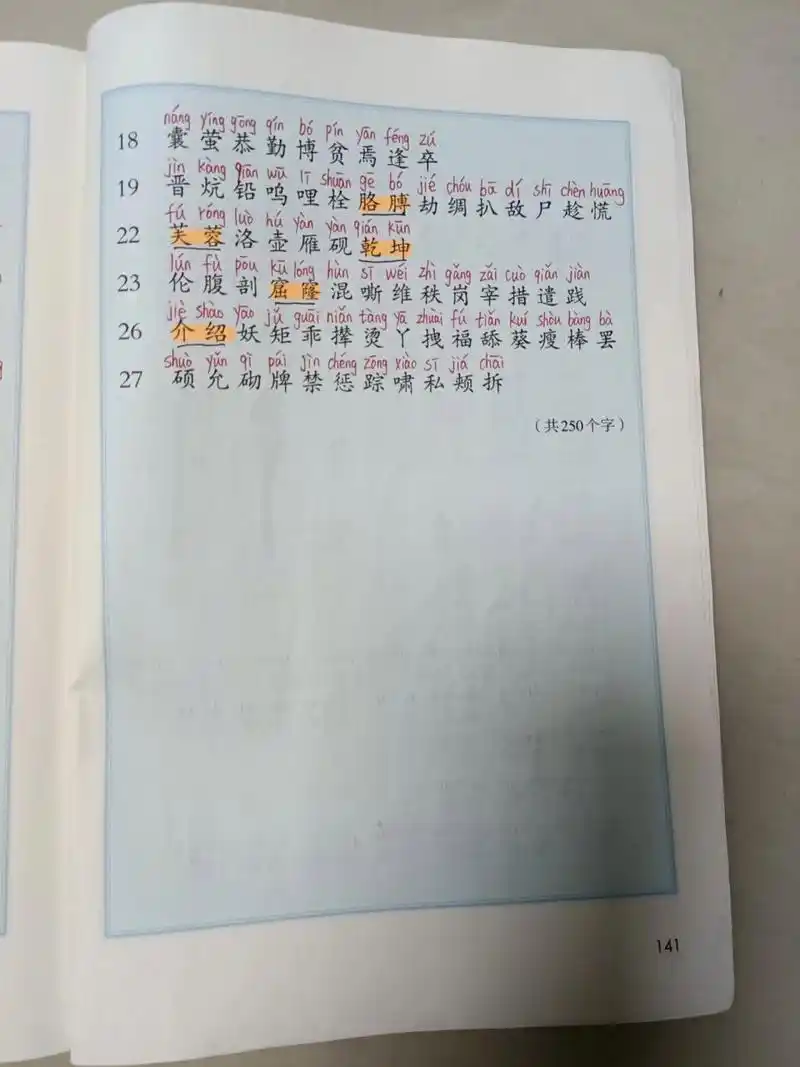 náng yíng gōng qín bó pín yān féng zú
18 囊 萤 恭 勤 博 贫 焉 逢 卒
jìn kàng qiān wū lī shuān gē bó jié chóu bā dí shī chèn huāng
19 晋 炕 铅 呜 哩 栓 胳 膊 劫 绸 扒 敌 尸 趁 慌
fú róng luò hú yàn yàn qián kūn
22 芙 蓉 洛 壶 雁 砚 乾 坤
lún fù pōu kū lóng hùn sī wéi zhì gǎng zǎi cuò qiǎn jiàn
23 伦 腹 剖 窟 窿 混 嘶 维 秩 岗 宰 措 遣 践
jiè shào yāo jǔ guāi niǎn tàng yā zhuài fú tiǎn kuí shòu bàng bà
26 介 绍 妖 矩 乖 撵 烫 丫 拽 福 舔 葵 瘦 棒 罢
shuò yǔn qì pái jìn chéng zōng xiào sī jiá chāi
27 硕 允 砌 牌 禁 惩 踪 啸 私 颊 拆
（共250个字）
141